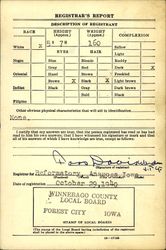 REGISTRAR'S REPORT
DESCRIPTION OF REGISTRANT
RACE HEIGHT (Approx.) WEIGHT (Approx.) COMPLEXION
White X 5' 7" 160 Sallow
EYES HAIR Light
Negro Blue Blonde Ruddy
Gray Red Dark X
Oriental Hazel Brown Freckled
Brown X Black X Light brown
Indian Black Gray Dark brown
Bald Black
Filipino
Other obvious physical characteristics that will aid in identification
None.
I certify that my answers are true; that the person registered has read or has had
read to him his own answers; that I have witnessed his signature or mark and that
all of his answers of which I have knowledge are true, except as follows:
Registrar for
Reformatory, Anamosa, Iowa
Date of registration October 29, 1940
WINNEBAGO COUNTY
LOCAL BOARD
FOREST CITY IOWA
(STAMP OF LOCAL BOARD)